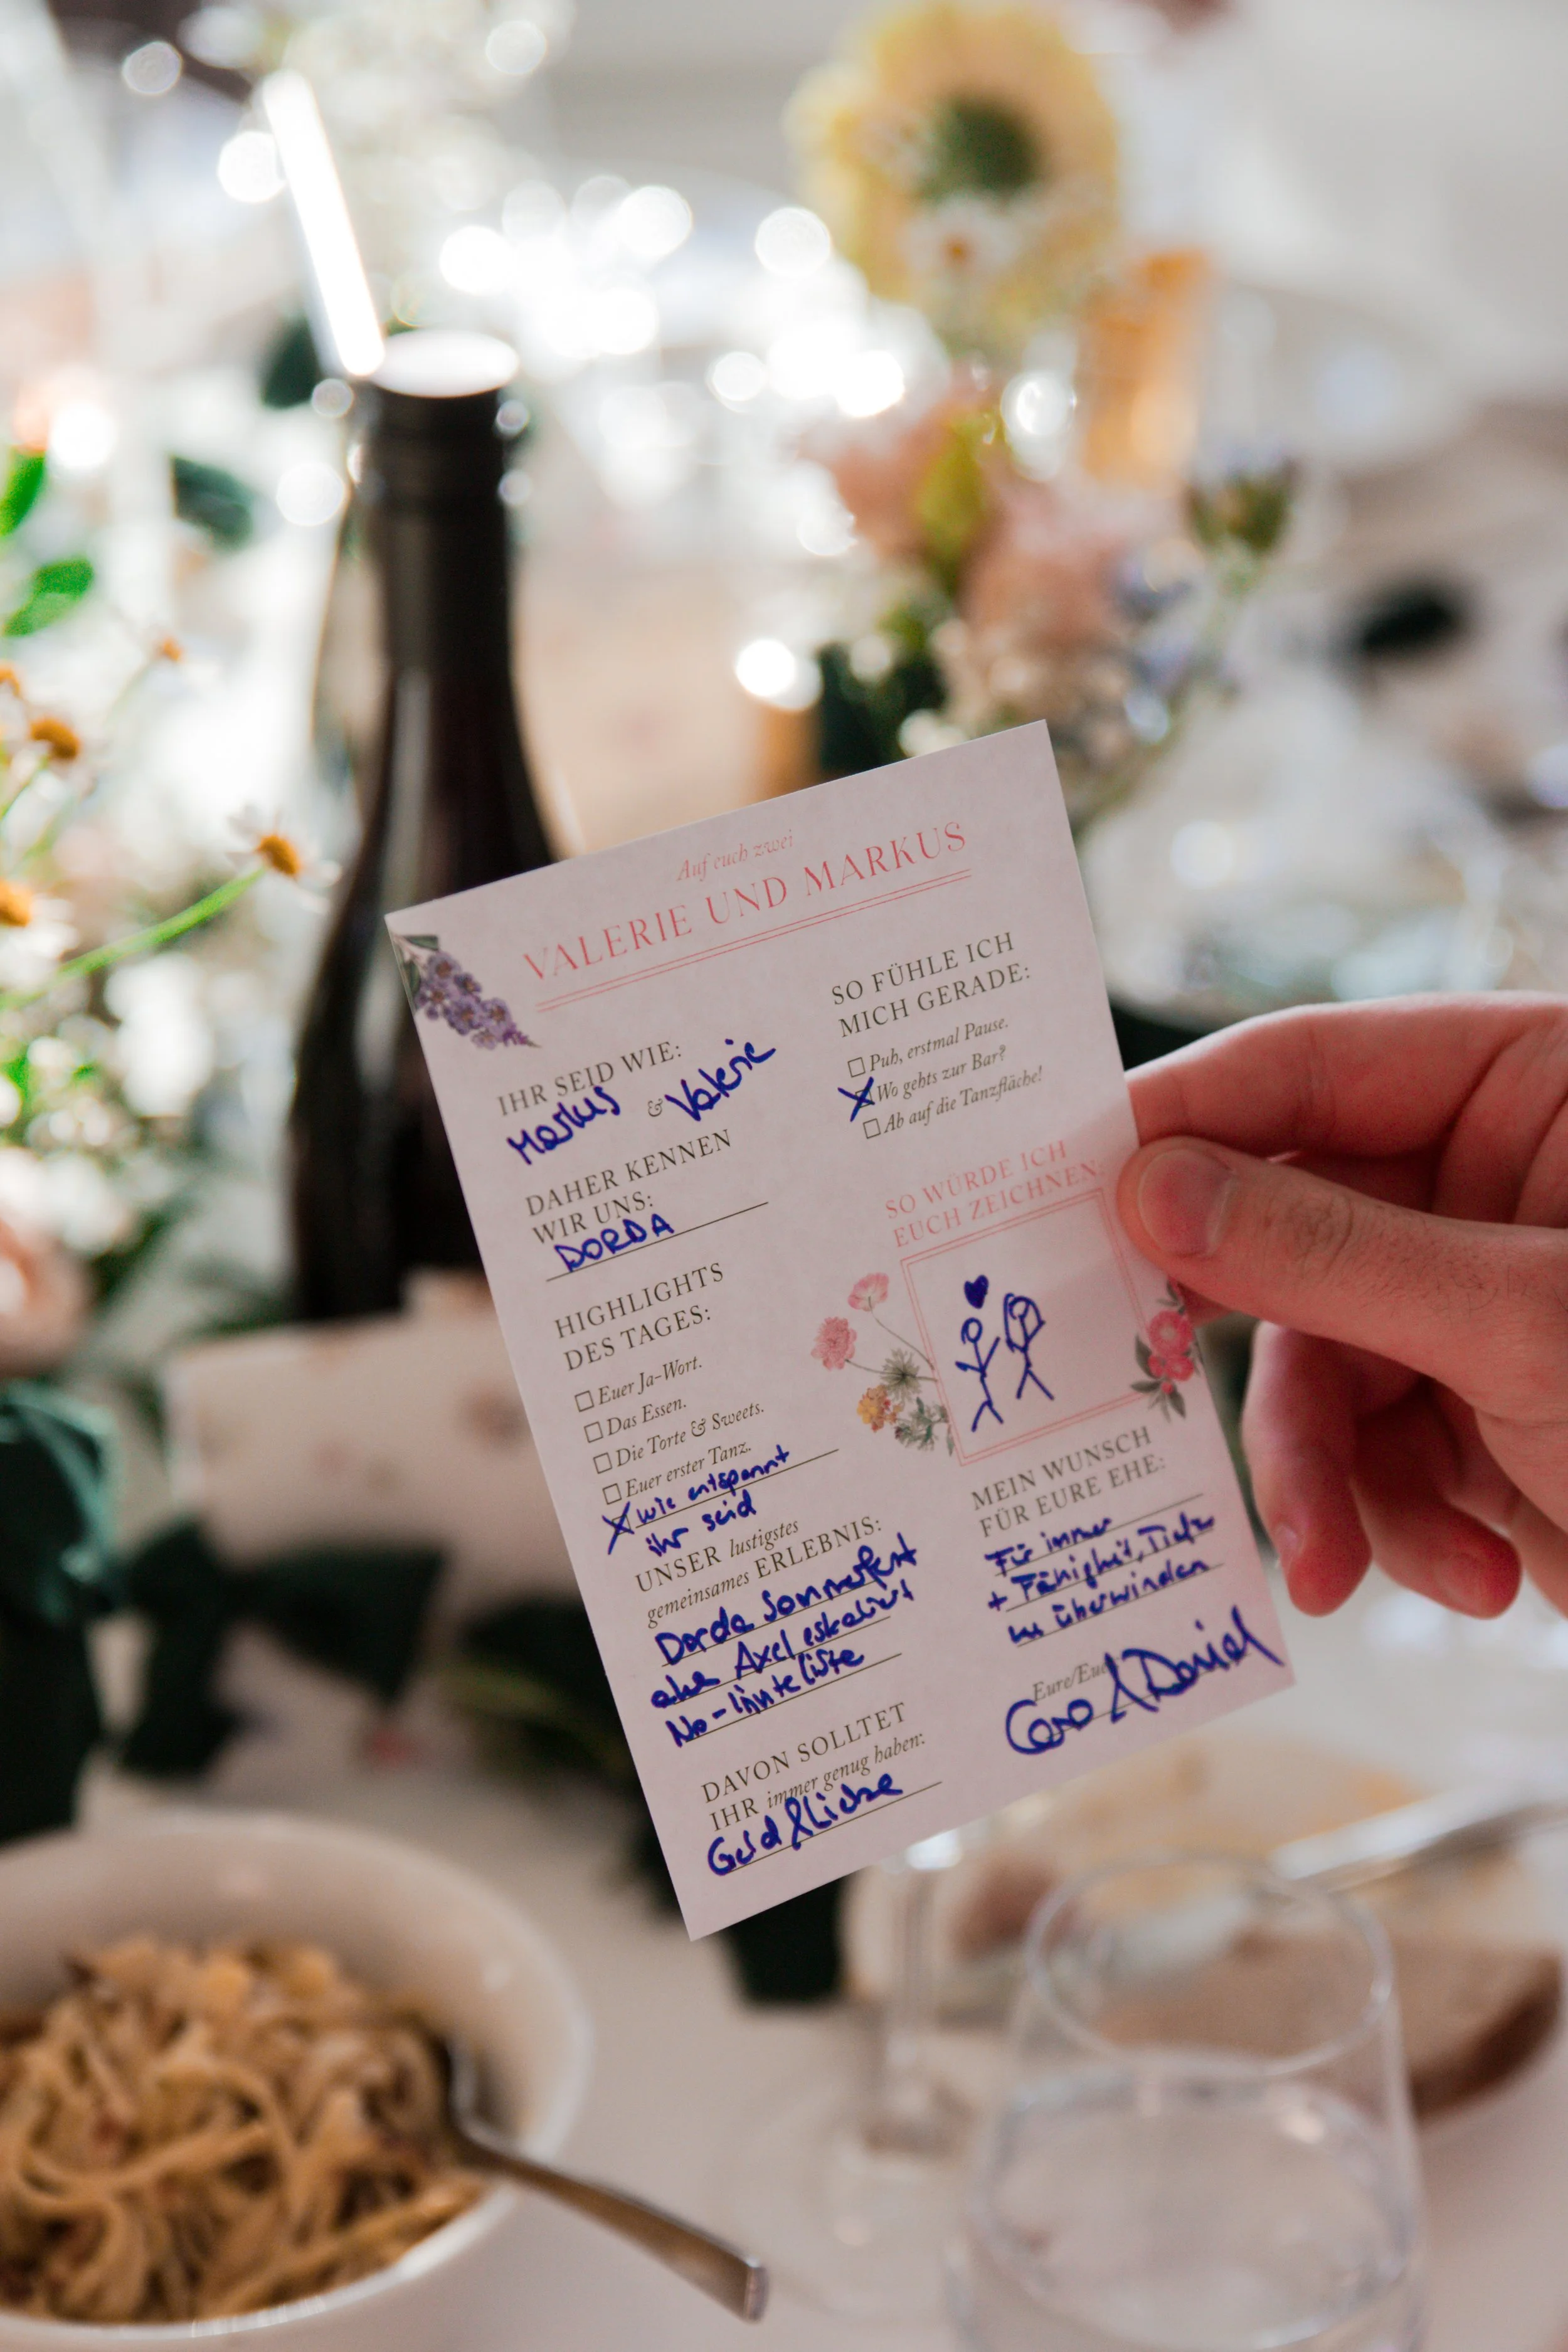 Auf euch zwei
VALERIE UND MARKUS
IHR SEID WIE:
Markus & Valerie
DAHER KENNEN
WIR UNS:
DORDA
HIGHLIGHTS
DES TAGES:
Euer Ja-Wort.
Das Essen.
Die Torte & Sweets.
Euer erster Tanz.
wie entspannt
ihr seid
UNSER lustigstes
gemeinsames ERLEBNIS:
Dorda Sommerfest
aka Axel eskaliert
No-
DAVON SOLLTET
IHR immer genug haben:
Geld & Liebe
SO FÜHLE ICH
MICH GERADE:
Puh, erstmal Pause.
Wo gehts zur Bar?
Ab auf die Tanzfläche!
SO WÜRDE ICH
EUCH ZEICHNEN:
MEIN WUNSCH
FÜR EURE EHE:
Für immer
+ Fähigkeit, Tiefen
zu überwinden
Eure/Euer
Caro & Daniel